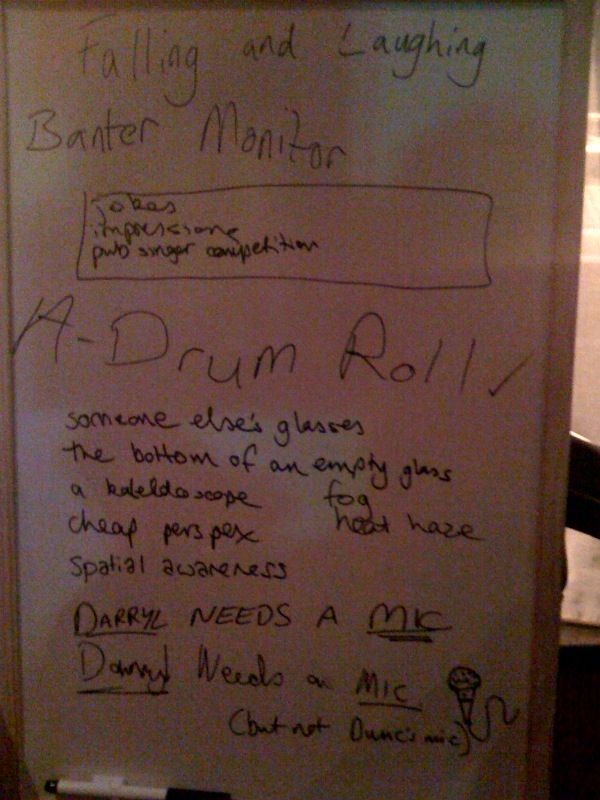 Falling and Laughing
Banter Monitor
jokes
impressions
pub singer competition
A-Drum Roll ✓
someone else's glasses
the bottom of an empty glass
a kaleidoscope fog
cheap perspex heat haze
spatial awareness
DARRYL NEEDS A MIC
Darryl Needs a MIC
(but not Dunc's mic)